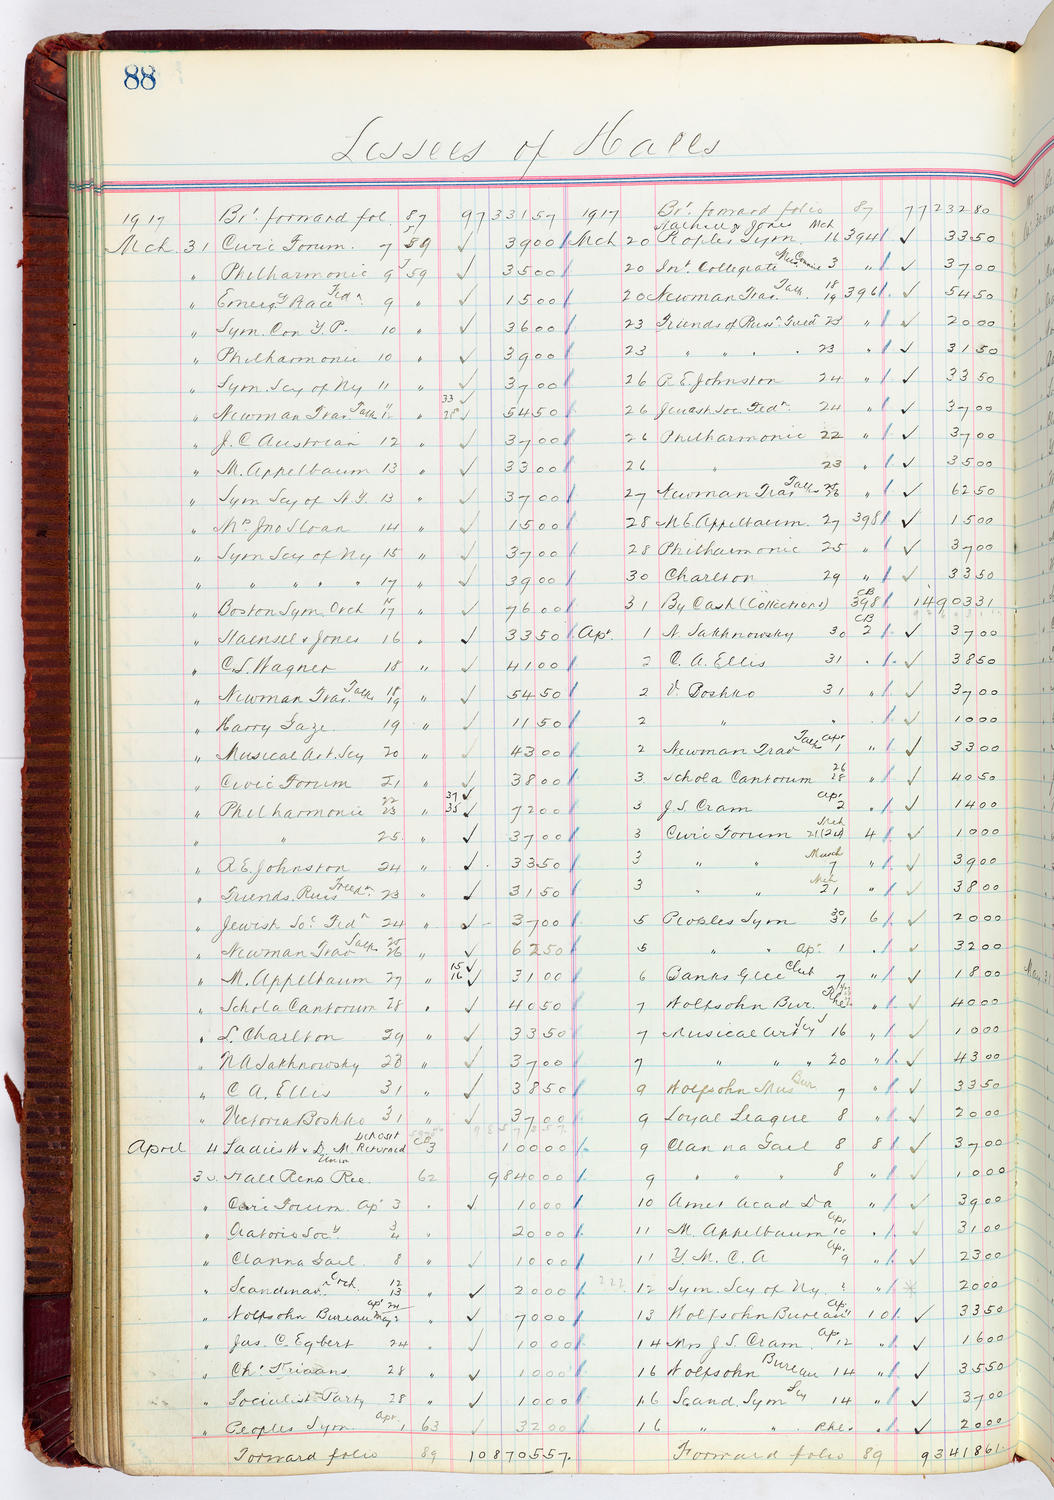 88
Lessees of Halls
1917 Brt. forward fol 87 97 331 57
Mch 31 Civic Forum 7 59 ✓ 39 00
" Philharmonic 9 59 ✓ 35 00
" Emergy Race Fedn 9 " ✓ 15 00
" Sym. Con Y. P. 10 " ✓ 36 00
" Philharmonic 10 " ✓ 39 00
" Sym Scy of Ny 11 " ✓ 37 00
" Newman Trav Talk " 33 28 ✓ 54 50
" J. C. Austrian 12 " ✓ 37 00
" M. Appelbaum 13 " ✓ 33 00
" Sym Scy of N.Y. 13 " ✓ 37 00
" Mrs Jno Sloan 14 " ✓ 15 00
" Sym Scy of Ny 15 " ✓ 37 00
" " " " " 17 " ✓ 39 00
" Boston Sym. Orch 17 " ✓ 76 00
" Haensel & Jones 16 " ✓ 33 50
" C. S. Wagner 18 " ✓ 41 00
" Newman Trav. Talks 18 19 " ✓ 54 50
" Harry 19 " ✓ 11 50
" Musical Art. Scy 20 " ✓ 43 00
" Civic Forum 21 " ✓ 38 00
" Philharmonic 22 23 " 37 35 ✓ 72 00
" " 25 " ✓ 37 00
" R. E. Johnston 24 " ✓ 33 50
" Friends. Russ Freedm 23 " ✓ 31 50
" Jewish Soc Fedn 24 " ✓ 37 00
" Newman Trav Talk 25 26 " ✓ 62 50
" M. Appelbaum 27 " 15 16 ✓ 31 00
" Schola Cantorum 28 " ✓ 40 50
" L. Charlton 29 " ✓ 33 50
" N A Sakhnowsky 28 " ✓ 37 00
" C. A. Ellis 31 " ✓ 38 50
" Victoria Boshko 31 " ✓ 37 00
April 4 Ladies Deposit Returned CB 3 100 00
30 Hall Rens Rec. 62 9840 00
" Civic Forum Ap' 3 " ✓ 10 00
" Oratorio Socy 3 4 " 20 00
" Clan na Gail 8 " ✓ 10 00
" Scandinav. Orch. 12 13 ✓ 20 00
" Wolfsohn Bureau Ap' 24 May 2 " ✓ 70 00
" Jas. C. Egbert 24 " ✓ 10 00
" 28 " ✓ 10 00
" Socialist Party 28 " ✓ 10 00
" Peoples Sym Apr. 1 63 ✓ 32 00
Forward folio 89 108 705 57
1917 Brt. forward folio 87 77 232 80
Mch 20 Haensel & Jones Peoples Sym Mch 11 394 ✓ 33 50
20 Int Collegiate 3 " ✓ 37 00
20 Newman Trav. Talk. 18 19 396 ✓ 54 50
23 Friends of Russn Freedm 23 " ✓ 20 00
23 " " " " 23 " ✓ 31 50
26 R. E. Johnston 24 " ✓ 33 50
26 Jewish Soc Fedn 24 " ✓ 37 00
26 Philharmonic 22 " ✓ 37 00
26 " 23 " ✓ 35 00
27 Newman Trav Talks 25 26 " ✓ 62 50
28 M. E. Appelbaum 27 398 ✓ 15 00
28 Philharmonic 25 " ✓ 37 00
30 Charlton 29 " ✓ 33 50
31 By Cash (Collections) CB 398 14 903 31
Apr. 1 N. Sakhnowsky 30 CB 2 ✓ 37 00
2 C. A. Ellis 31 " ✓ 38 50
2 V. Boshko 31 " ✓ 37 00
2 " " " ✓ 10 00
2 Newman Trav Talk Apr 1 " ✓ 33 00
3 Schola Cantorum 26 28 " ✓ 40 50
3 J. S. Cram Apr 2 " ✓ 14 00
3 Civic Forum Mch 21 (24) 4 ✓ 10 00
3 " " March 7 " ✓ 39 00
3 " " Mch 21 " ✓ 38 00
5 Peoples Sym 30 31 6 ✓ 20 00
5 " " Ap'. 1 " ✓ 32 00
6 Banks Glee Club 7 " ✓ 18 00
7 Wolfsohn Bur. " ✓ 40 00
7 Musical Art Scy 16 " ✓ 10 00
7 " " " 20 " ✓ 43 00
9 Wolfsohn Mus Bur 7 " ✓ 33 50
9 Loyal League 8 " ✓ 20 00
9 Clan na Gail 8 8 ✓ 37 00
9 " " " 8 " ✓ 10 00
10 Amer Acad Da " ✓ 39 00
11 M. Appelbaum Ap. 10 " ✓ 31 00
11 Y. M. C. A Ap. 9 " ✓ 23 00
222 12 Sym. Scy of Ny ? " 20 00
13 Wolfsohn Bureau Ap. 11 10 ✓ 33 50
14 Mrs J. S. Cram Ap 12 " ✓ 16 00
16 Wolfsohn Bureau 14 " ✓ 35 50
16 Scand. Sym Scy 14 " ✓ 37 00
16 " " Rhe. " ✓ 20 00
Forward folio 89 93 418 61